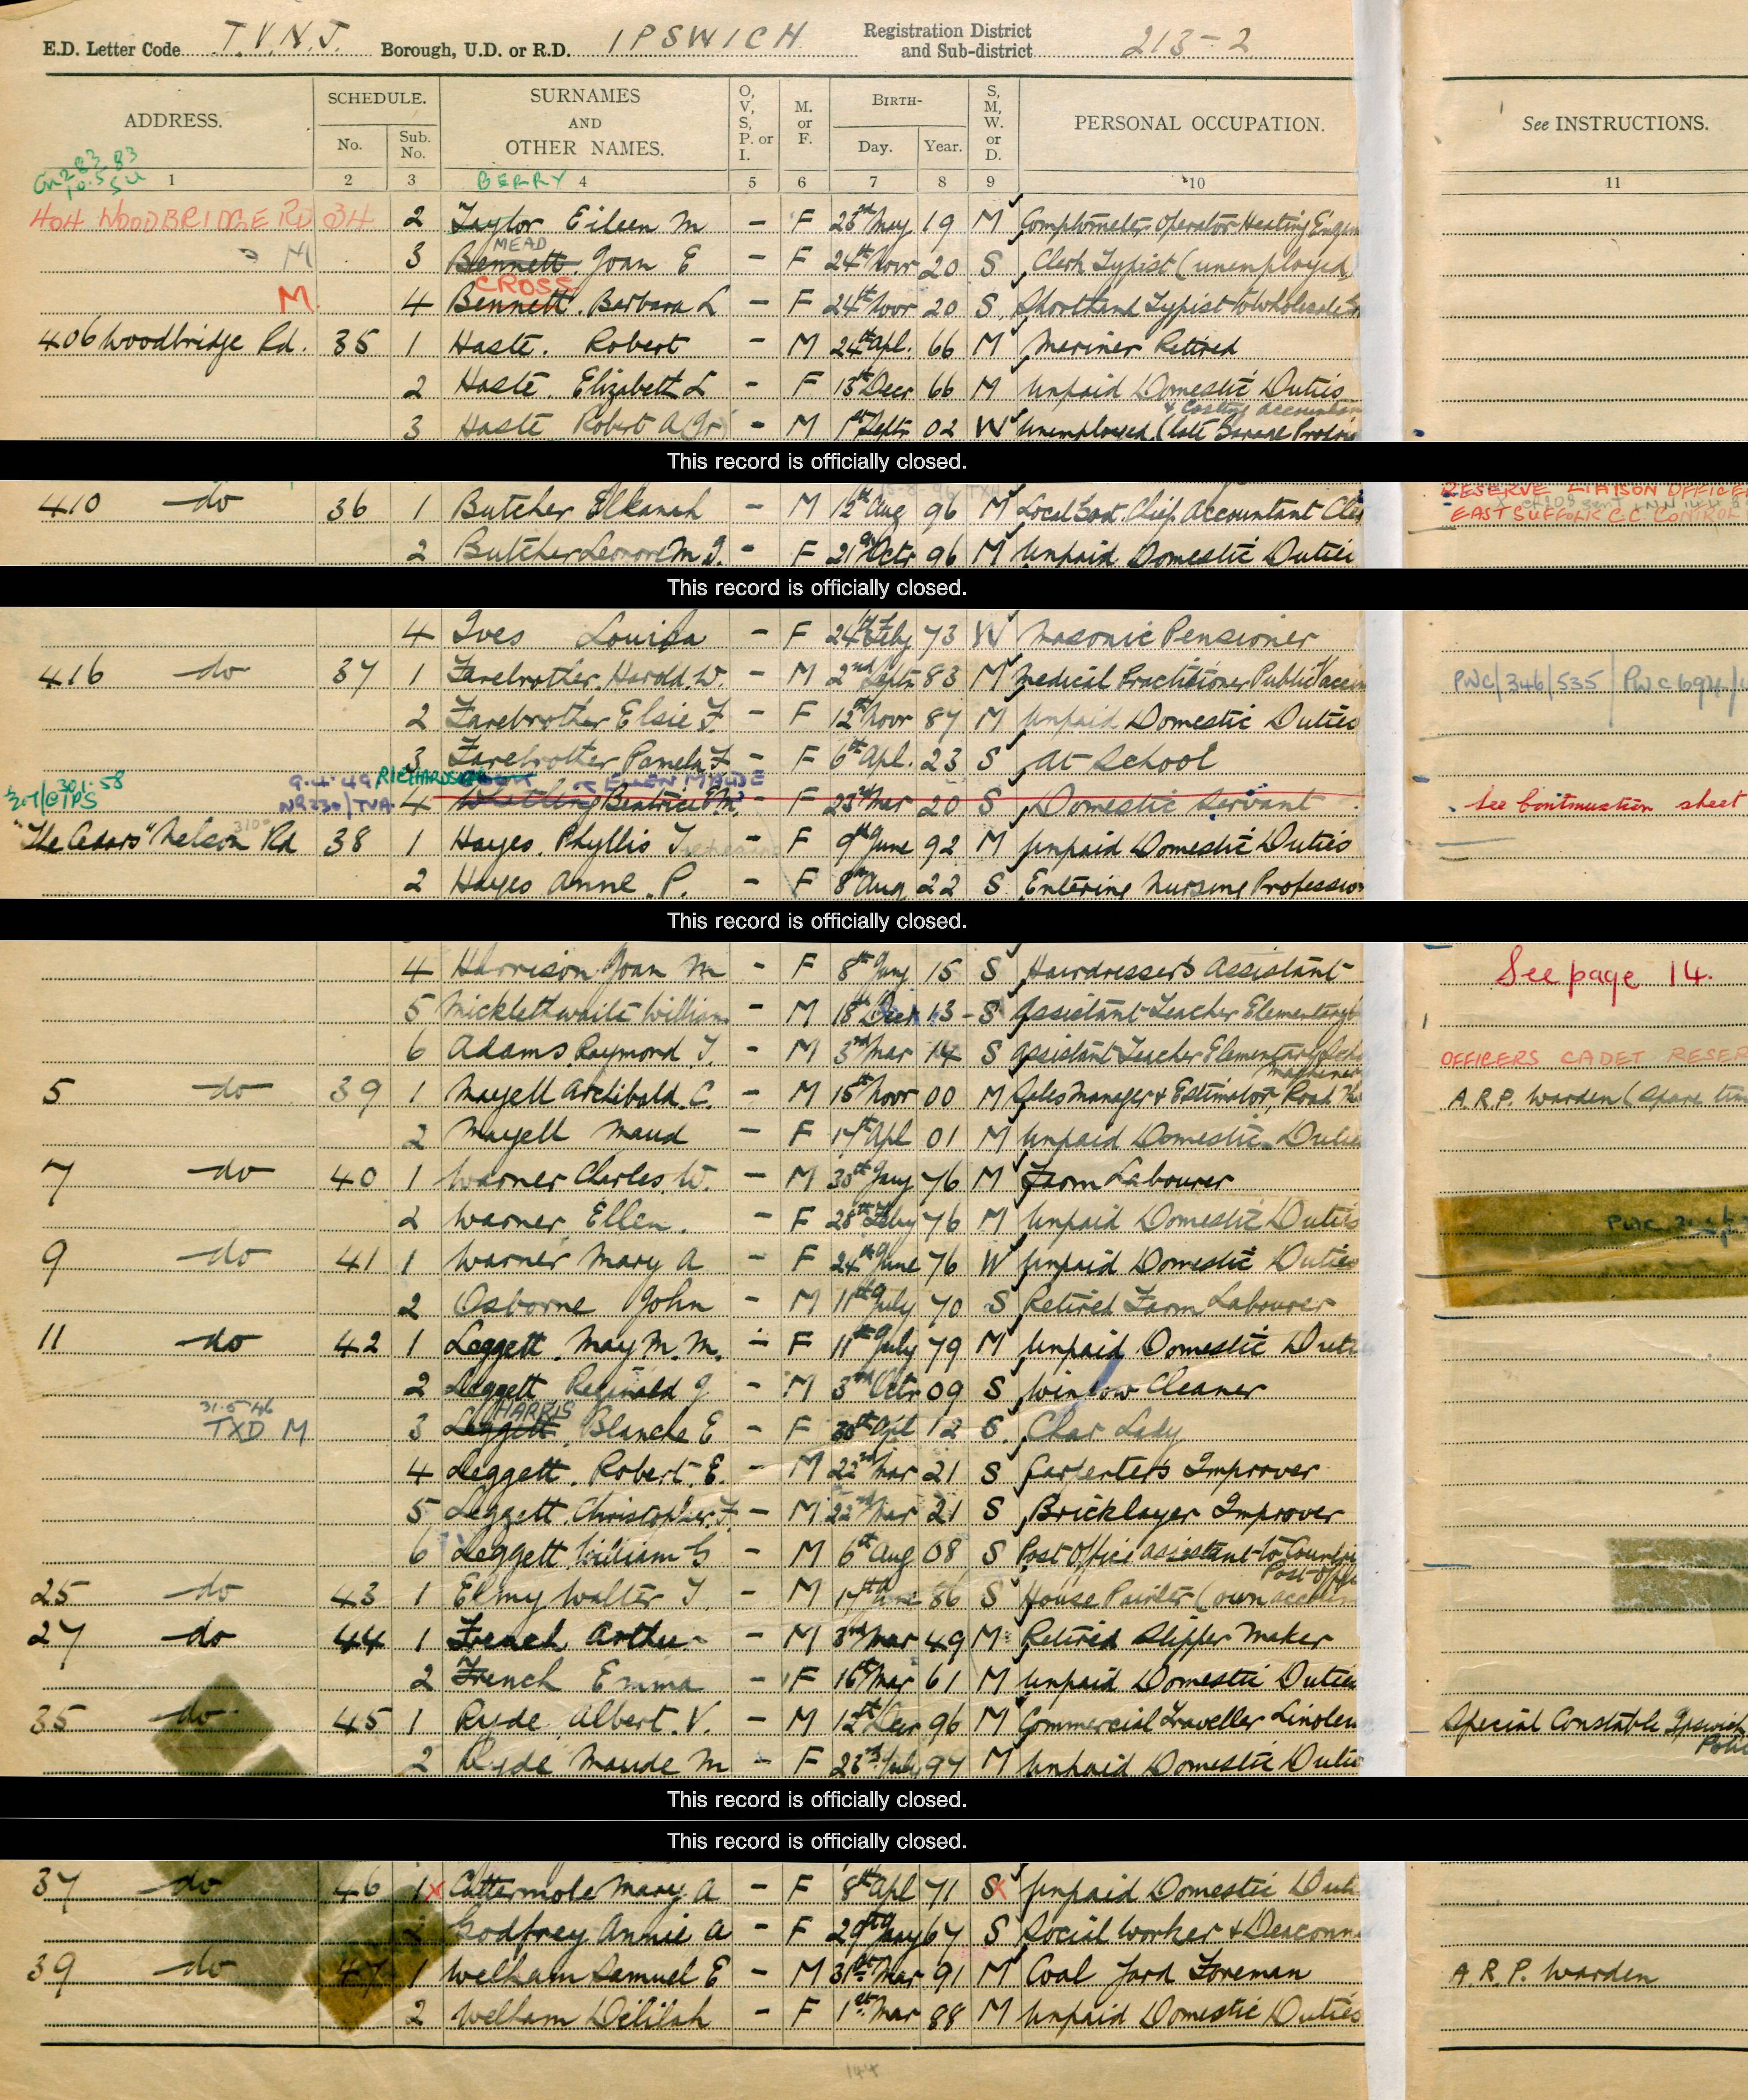 E.D. Letter Code T.V.N.J. Borough, U.D. or R.D. IPSWICH Registration District and Sub-district 213-2
ADDRESS. SCHEDULE. No. Sub. No. SURNAMES AND OTHER NAMES. O, V, S, P. or I. M. or F. BIRTH- Day. Year. S, M, W. or D. PERSONAL OCCUPATION. See INSTRUCTIONS.
1 2 3 BERRY 4 5 6 7 8 9 10 11
404 WOODBRIDGE RD 34 2 Taylor Eileen M - F 23rd May 19 M Comptometer Operator Heating
MEAD
M 3 Bennett Joan E - F 24th Novr 20 S Clerk Typist (unemployed)
CROSS
M 4 Bennett Barbara L - F 24th Novr 20 S Shorthand Typist to Wholesale
406 Woodbridge Rd. 35 1 Haste. Robert - M 24th Apl. 66 M Mariner Retired
2 Haste. Elizabeth L - F 13th Decr 66 M Unpaid Domestic Duties
& Costing accountan
3 Haste Robert A Jr - M 1st Septr 02 W Unemployed (late Garage
This record is officially closed.
410 do 36 1 Butcher Elkanah - M 12th Aug 96 M Local Govt. Chief Accountant RESERVE LIAISON OFFICE
EAST SUFFOLK C.C. CONTROL
2 Butcher Leonore M. J. - F 21st Octr 96 M Unpaid Domestic Duties
This record is officially closed.
4 Ives Louisa - F 24th Feby 73 W Masonic Pensioner
416 do 37 1 Farebrother. Harold. W. - M 2nd Septr 83 M Medical Practitioner Public PWC/346/535
2 Farebrother Elsie F. - F 12th Novr 87 M Unpaid Domestic Duties
3 Farebrother Pamela F - F 6th Apl. 23 S At School
30.1.58 9.4.49 RICHARDSON ELLEN MAUDE
4 Whitling Beatrice E M. - F 23rd Mar 20 S Domestic Servant See Continuation sheet
"The Cedars" Nelson Rd 38 1 Hayes. Phyllis - F 9th June 92 M Unpaid Domestic Duties
2 Hayes Anne. P. - F 8th Aug 22 S Entering Nursing Profession
This record is officially closed.
4 Harrison Joan M - F 8th Jany 15 S Hairdressers Assistant See page 14.
5 Micklethwaite William - M 18th Decr 13 - S Assistant Teacher Elementary
6 Adams. Raymond J. - M 3rd Mar 14 S Assistant Teacher Elementary OFFICERS CADET RESER
5 do 39 1 Mayell Archibald. C. - M 15th Novr 00 M Sales Manager & Estimator, Road A.R.P. Warden (Spare tim
2 Mayell Maud - F 17th Apl 01 M Unpaid Domestic Duties
7 do 40 1 Warner Charles. W. - M 30th Jany 76 M Farm Labourer
2 Warner. Ellen. - F 28th Feby 76 M Unpaid Domestic Duties
9 do 41 1 Warner Mary A - F 24th June 76 W Unpaid Domestic Duties
2 Osborne John - M 11th July 70 S Retired Farm Labourer
11 do 42 1 Leggett. May. M. M. - F 11th July 79 M Unpaid Domestic Duti
2 Leggett Reginald J - M 3rd Octr 09 S Window Cleaner
31.5.46 HARRIS
TXD M 3 Leggett. Blanche E - F 30th Apl 12 S. Char Lady
4 Leggett. Robert. E. - M 22nd Mar 21 S Carpenters Improver
5 Leggett. Christopher. F. - M 22nd Mar 21 S Bricklayer Improver
6 Leggett William G - M 6th Aug 08 S Post Office assistant to
25 do 43 1 Elmy Walter J. - M 17th 86 S House Painter (own account
27 do 44 1 French Arthur - M 3rd Mar 49 M Retired Slipper Maker
2 French Emma - F 16th Mar 61 M Unpaid Domestic Duties
35 do 45 1 Ryde. Albert. V. - M 12th Decr 96 M Commercial Traveller Linoleu Special Constable Ipswich
2 Ryde Maude M - F 23rd July 97 M Unpaid Domestic Duties
This record is officially closed.
This record is officially closed.
37 do 46 1 x Cattermole Mary. A - F 8th Apl 71 S Unpaid Domestic Duti
Godfrey Annie A - F 29th Jany 67 S Social Worker & Deaconn
39 do 47 1 Welham Samuel E - M 31st Mar 91 M Coal Yard Foreman A.R.P. Warden
2 Welham Delilah - F 1st Mar 88 M Unpaid Domestic Duties